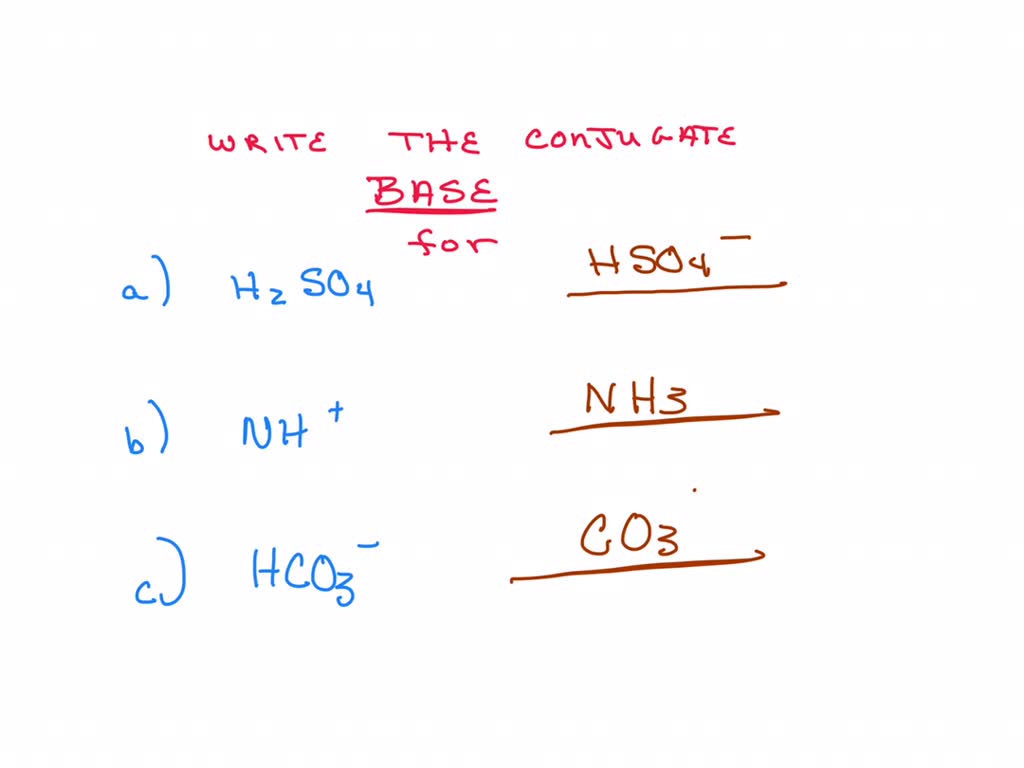 WRITE THE CONJUGATE
BASE
for
a) H₂SO₄ HSO₄⁻
b) NH⁺ NH₃
c) HCO₃⁻ CO₃